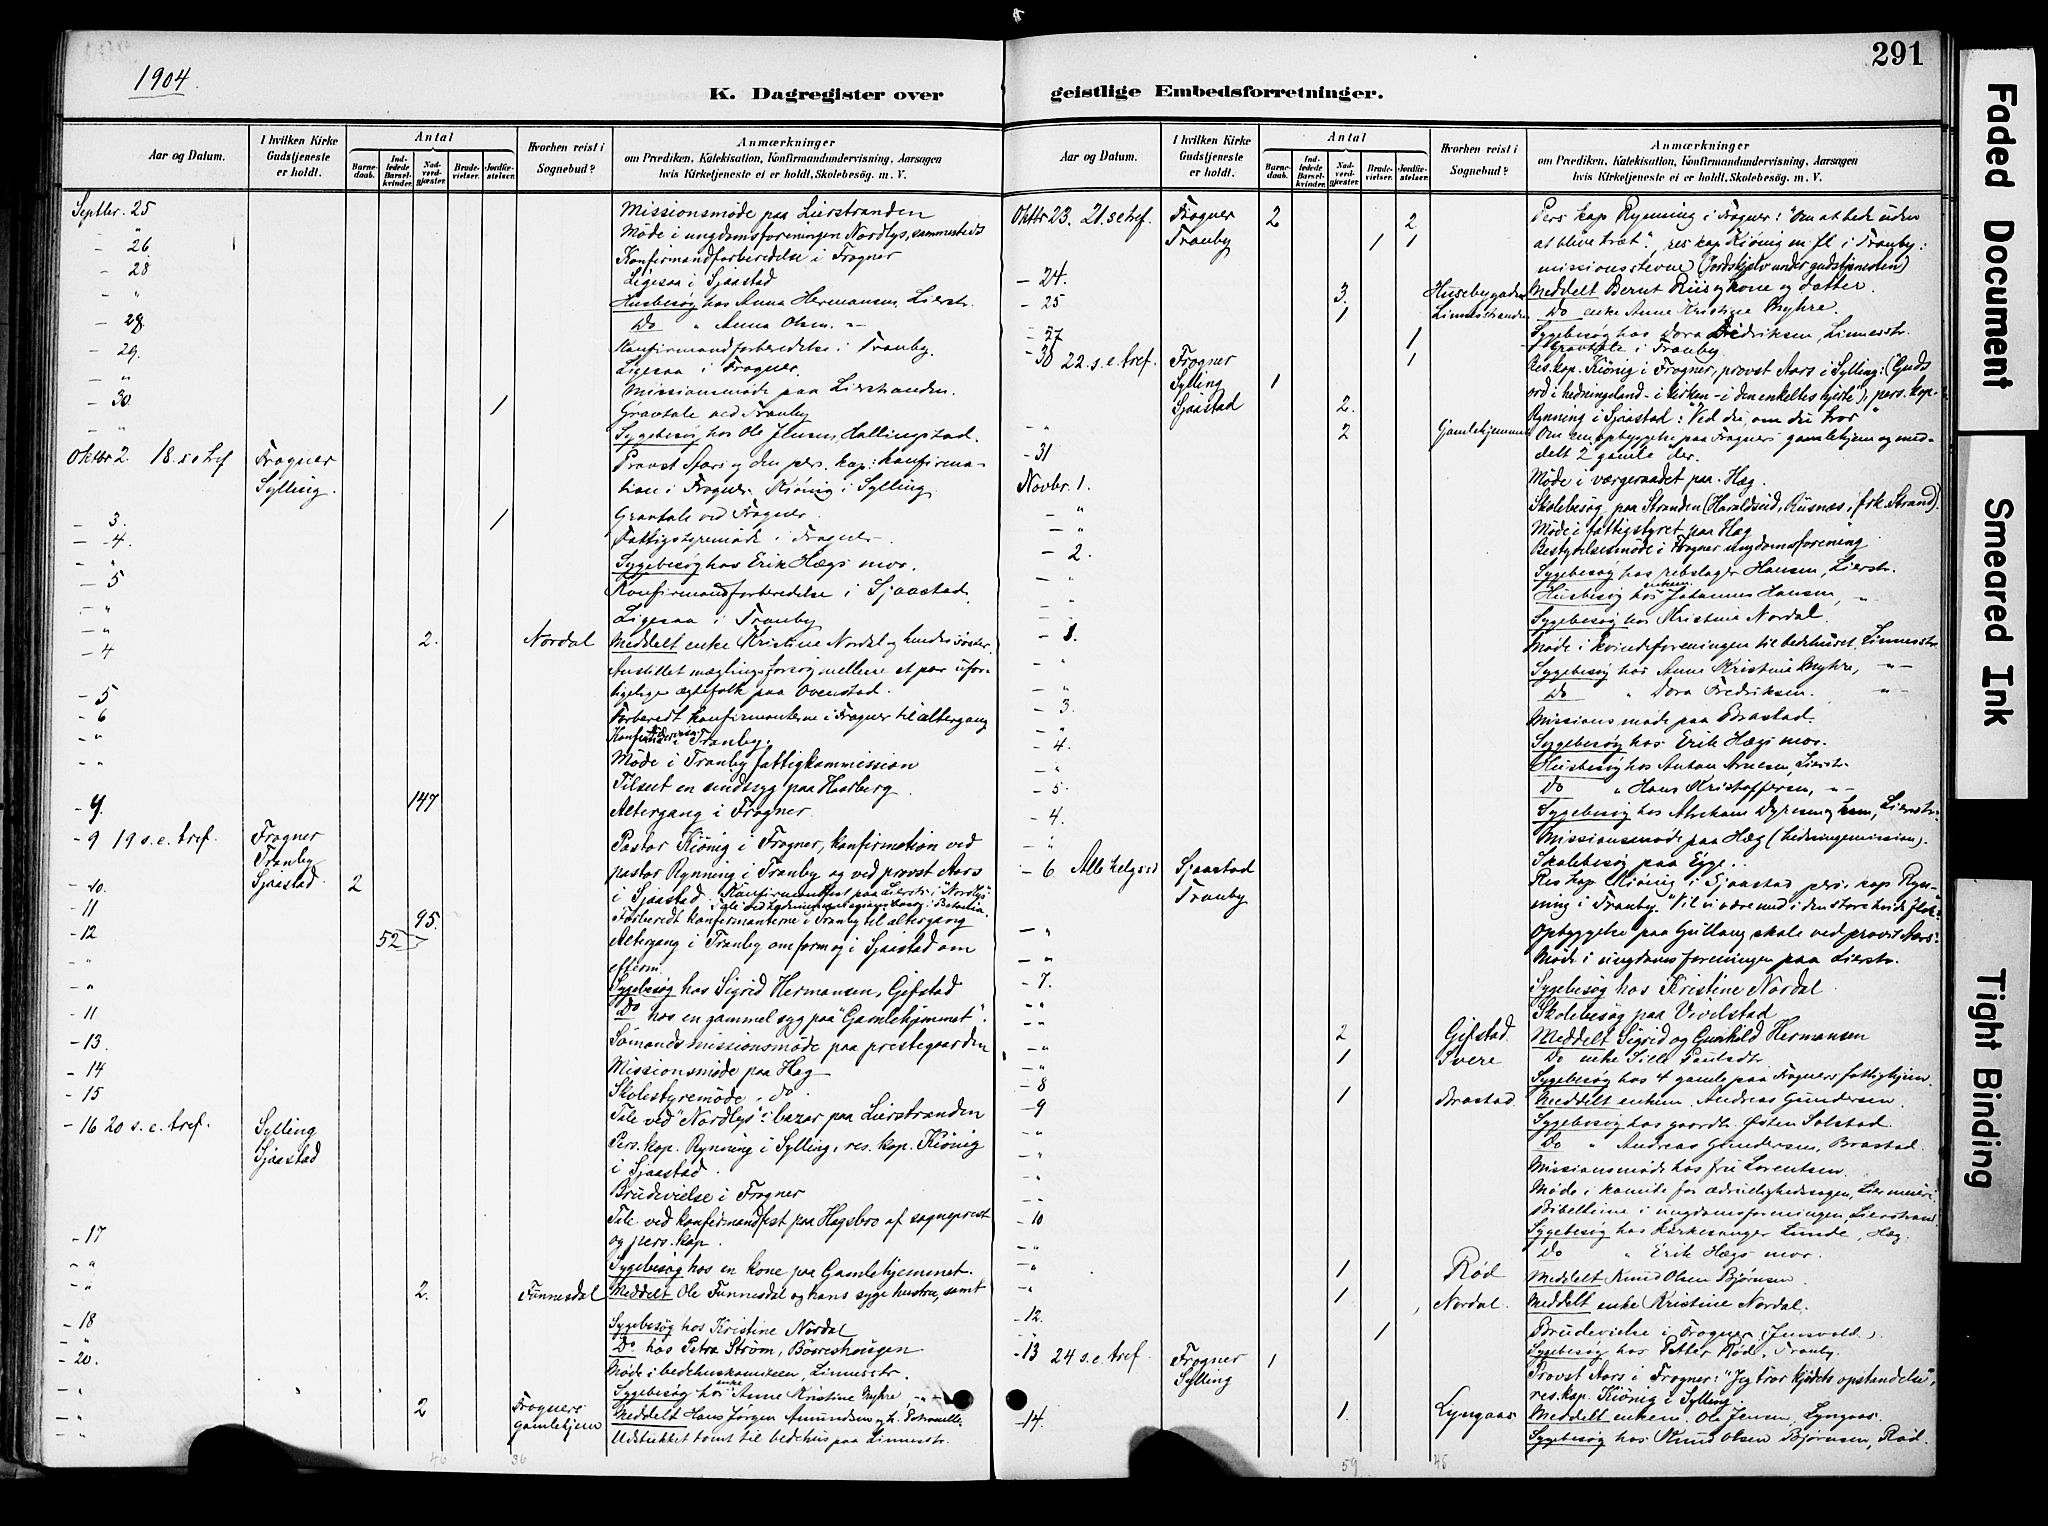 1904.
K. Dagregister over
Aar og Datum.
I hvilken Kirke Gudstjeneste er holdt.
Antal
Barnedaab.
Indledede Barselkvinder.
Nadverdgjæster.
Brudevielser.
Jordfæstelser.
Hvorhen reist i Sognebud?
Anmærkninger
om Prædiken, Katekisation, Konfirmandundervisning, Aarsagen
hvis Kirketjeneste ei er holdt, Skolebesøg. m. V.
Septbr. 25 Missionsmøde paa Lierstranden
" Møde i ungdomsforeningen Nordlys, sammesteds
- 26 Konfirmandforberedelse i Frogner
- 28 Ligesaa i Sjaastad
- " Husbesøg hos Anna Hermansen, Lierstr.
- 28. Do " Anna Olsen -"-
- 29. Konfirmandforberedelse i Tranby.
- " Ligesaa i Frogner.
- 30. Missionsmøde paa Lierstranden.
1 Gravtale ved Tranby
- " Sygebesøg hos Ole Jensen, Hallingstad.
Oktbr 2. 18. s e tref Frogner Provst Aars og den pers. kap: konfirma-
Sylling. tion i Frogner. Kiönig i Sylling.
- 3. 1 Gravtale ved Frogner.
- 4. Fattigstyremøde i Frogner.
- " Sygebesøg hos Erik Hægs mor.
- 5 Konfirmandforberedelse i Sjaastad
- " Ligesaa i Tranby
- " 2. Nordal Meddelt enke Kristine Nordal og hendes søster.
- 4 Anstillet mæglingsforsøg mellem et par ufor-
ligelige ægtefolk paa Ovenstad.
- 5 Forberedt konfirmanterne i Frogner til altergang
- 6 Tranby.
- " Møde i Tranby fattigkommission
- " Tilseet en sindssyg paa Haarberg.
- 9. 147 Altergang i Frogner.
- 9 19 s. e. tref. Frogner Pastor Kiönig i Frogner, konfirmation ved
Tranby pastor Rynning i Tranby og ved provst Aars
- 10. Sjaastad 2 i Sjaastad. Konfirmantfest paa Lierstr. i "Nordlys"
- 11 95. Forberedt konfirmanterne i Tranby til altergang
- 12 52 Altergang i Tranby om form og i Sjaastad om
efterm.
- " Sygebesøg hos Sigrid Hermansen, Gifstad
- 11 Do hos en gammel syg paa "Gamlehjemmet".
- 13. Sømandsmissionsmøde paa prestegaarden
- 14 Missionsmøde paa Hæg
- 15 Skolestyremøde " do
Tale ved "Nordlys": bazar paa Lierstranden
- 16 20 s. e. tref. Sylling Pers. kap. Rynning i Sylling, res. kap. Kiönig
Sjaastad i Sjaastad.
Brudevielse i Frogner
Tale ved konfirmandfest paa Hægsbro af sogneprest
- 17 og pers. kap.
- " Sygebesøg hos en kone paa Gamlehjemmet.
- " 2. Funnesdal Meddelt Ole Funnesdal og hans syge hustru, samt
- 18 Sygebesøg hos Kristine Nordal
- " Do hos Petra Strøm,
- 20. Møde i bedehuskomiteen, Linnesstr.
- " Sygebesøg hos enke Anne Kristine Myhre -"-
- " 2 Frogners gamlehjem Meddelt Hans Jørgen Amundsen og
- " Udstukket tomt til bedehus paa Linnesstr.
46 36
291
geistlige Embedsforretninger.
Aar og Datum.
I hvilken Kirke Gudstjeneste er holdt.
Antal
Barnedaab.
Indledede Barselkvinder.
Nadverdgjæster.
Brudevielser.
Jordfæstelser.
Hvorhen reist i Sognebud?
Anmærkninger
om Prædiken, Katekisation, Konfirmandundervisning, Aarsagen
hvis Kirketjeneste ei er holdt, Skolebesøg. m. V.
Oktbr 23. 21. s e tref. Frogner 2 2 Pers kap Rynning i Frogner: "Om at bede uden
Tranby 1 1 at blive træt"., res kap Kiönig m. fl i Tranby:
missionsstevne (Jordskjælv under gudstjenesten)
- 24. 3. Meddelt Bernt Riis og kone og datter.
- 25 1 Linnesstranden Do enke Anne Kristine Myhre.
- 27 1 Sygebesøg hos Dora Fredriksen, Linnesstr.
Gravtale i Tranby.
- 30 22. s. e. tref. Frogner 1 Res. kap. Kiönig i Frogner, provst Aars i Sylling: (Guds
Sylling 1 ord i hedningeland - i kirken - i den enkeltes hjerte"), pers. kap.
Sjaastad 2. Rynning i Sjaastad: "Ved du, om du tror"
- " 2 Gamlehjemmet Om em. opbyggelse paa Frogners gamlehjem og med-
- 31 delt 2 gamle der.
Møde i værgeraadet paa Hæg.
Novbr. 1. Skolebesøg paa Stranden (Haraldseid, Riisnæs, frk. Strand).
- " Møde i fattigstyret paa Hæg
- " Bestyrelsesmøde i Frogner ungdomsforening
- 2. Sygebesøg hos rebslager Hansen, Lierstr.
- " Husbesøg hos enkem. Johannes Hansen, -"-
- " Sygebesøg hos Kristine Nordal.
- 3. Møde i kvindeforeningen til bedehuset, Linnesstr.
- " Sygebesøg hos Anne Kristine Myhre, -"-
- " Do " Dora Fredriksen. -"-
- 3. Missionsmøde paa Brastad.
- " Sygebesøg hos Erik Hægs mor.
- 4. Husbesøg hos Anton Arnesen, Lierstr.
- " Do " Hans Kristoffersen, -"-
- 5. Sygebesøg hos Abraham Lierstr.
- 4. Missionsmøde paa Hæg (hedningemission).
- " Skolebesøg paa Egge.
- 6 Alle helgesd Sjaastad Res kap Kiönig i Sjaastad, pers. kap Ryn-
Tranby ning i Tranby. "Vil vi være med i den store hvide flok"
- " Opbyggelse paa skole ved provst Aars.
- " Møde i ungdomsforeningen paa Lierstr.
- 7. Sygebesøg hos Kristine Nordal.
- " Skolebesøg paa Vivelstad
- " 2 Gifstad Meddelt Sigrid og Gunhild Hermansen
- " 1 Svere Do enke Paulsdt.
- " Sygebesøg hos 4 gamle paa Frogners fattighjem.
- 8 1 Brastad Meddelt enkem. Andreas Gundersen.
- 9 Sygebesøg hos gaardb. Østen Solstad.
- " Do " Andreas Gundersen, Brastad.
- " Missionsmøde hos fru Lorentsen.
- " Møde i komite for ædruelighedssagen, Liermuseri
- " Bibeltime i ungdomsforeningen, Lierstrand.
- 10 Sygebesøg hos kirkesanger Lunde, Hæg.
- " Do " Erik Hægs mor.
- " 1 Rød Meddelt Knud Olsen Bjørnsen.
- " 1 Nordal. Meddelt enke Kristine Nordal.
- 12. 1 Brudevielse i Frogner
- " Sygebesøg hos Petter Rød, Tranby.
- 13 24 s. e. tref. Frogner 1 Provst Aars i Frogner: "Jeg tror kjødets opstandelse",
Sylling res. kap. Kiönig i Sylling.
- 14. 1. Lyngaas Meddelt enkem. Ole Jensen, Lyngaas.
Sygebesøg hos Knud Olsen Bjørnsen, Rød.
59 45
Faded Document
Smeared Ink
Tight Binding